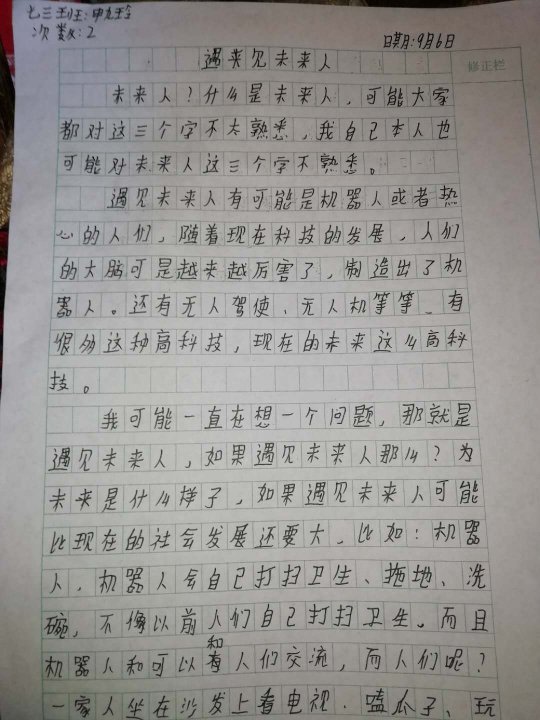 七三班: 申九玲
次数: 2
日期: 9月6日
遇来见未来人
修正栏
未来人?什么是未来人,可能大家
都对这三个字不太熟悉,我自己本人也
可能对未来人这三个字不熟悉。
遇见未来人有可能是机器人或者热
心的人们,随着现在科技的发展,人们
的大脑可是越来越厉害了,制造出了机
器人。还有无人驾使、无人机等等、有
很多这种高科技,现在的未来这么高科
技。
我可能一直在想一个问题,那就是
遇见未来人,如果遇见未来人那么?为
未来是什么样子,如果遇见未来人可能
比现在的社会发展还要大,比如:机器
人,机器人会自己打扫卫生、拖地、洗
碗,不像以前人们自己打扫卫生。而且
机器人和可以和人们交流,而人们呢?
一家人坐在沙发上看电视.嗑瓜子、玩